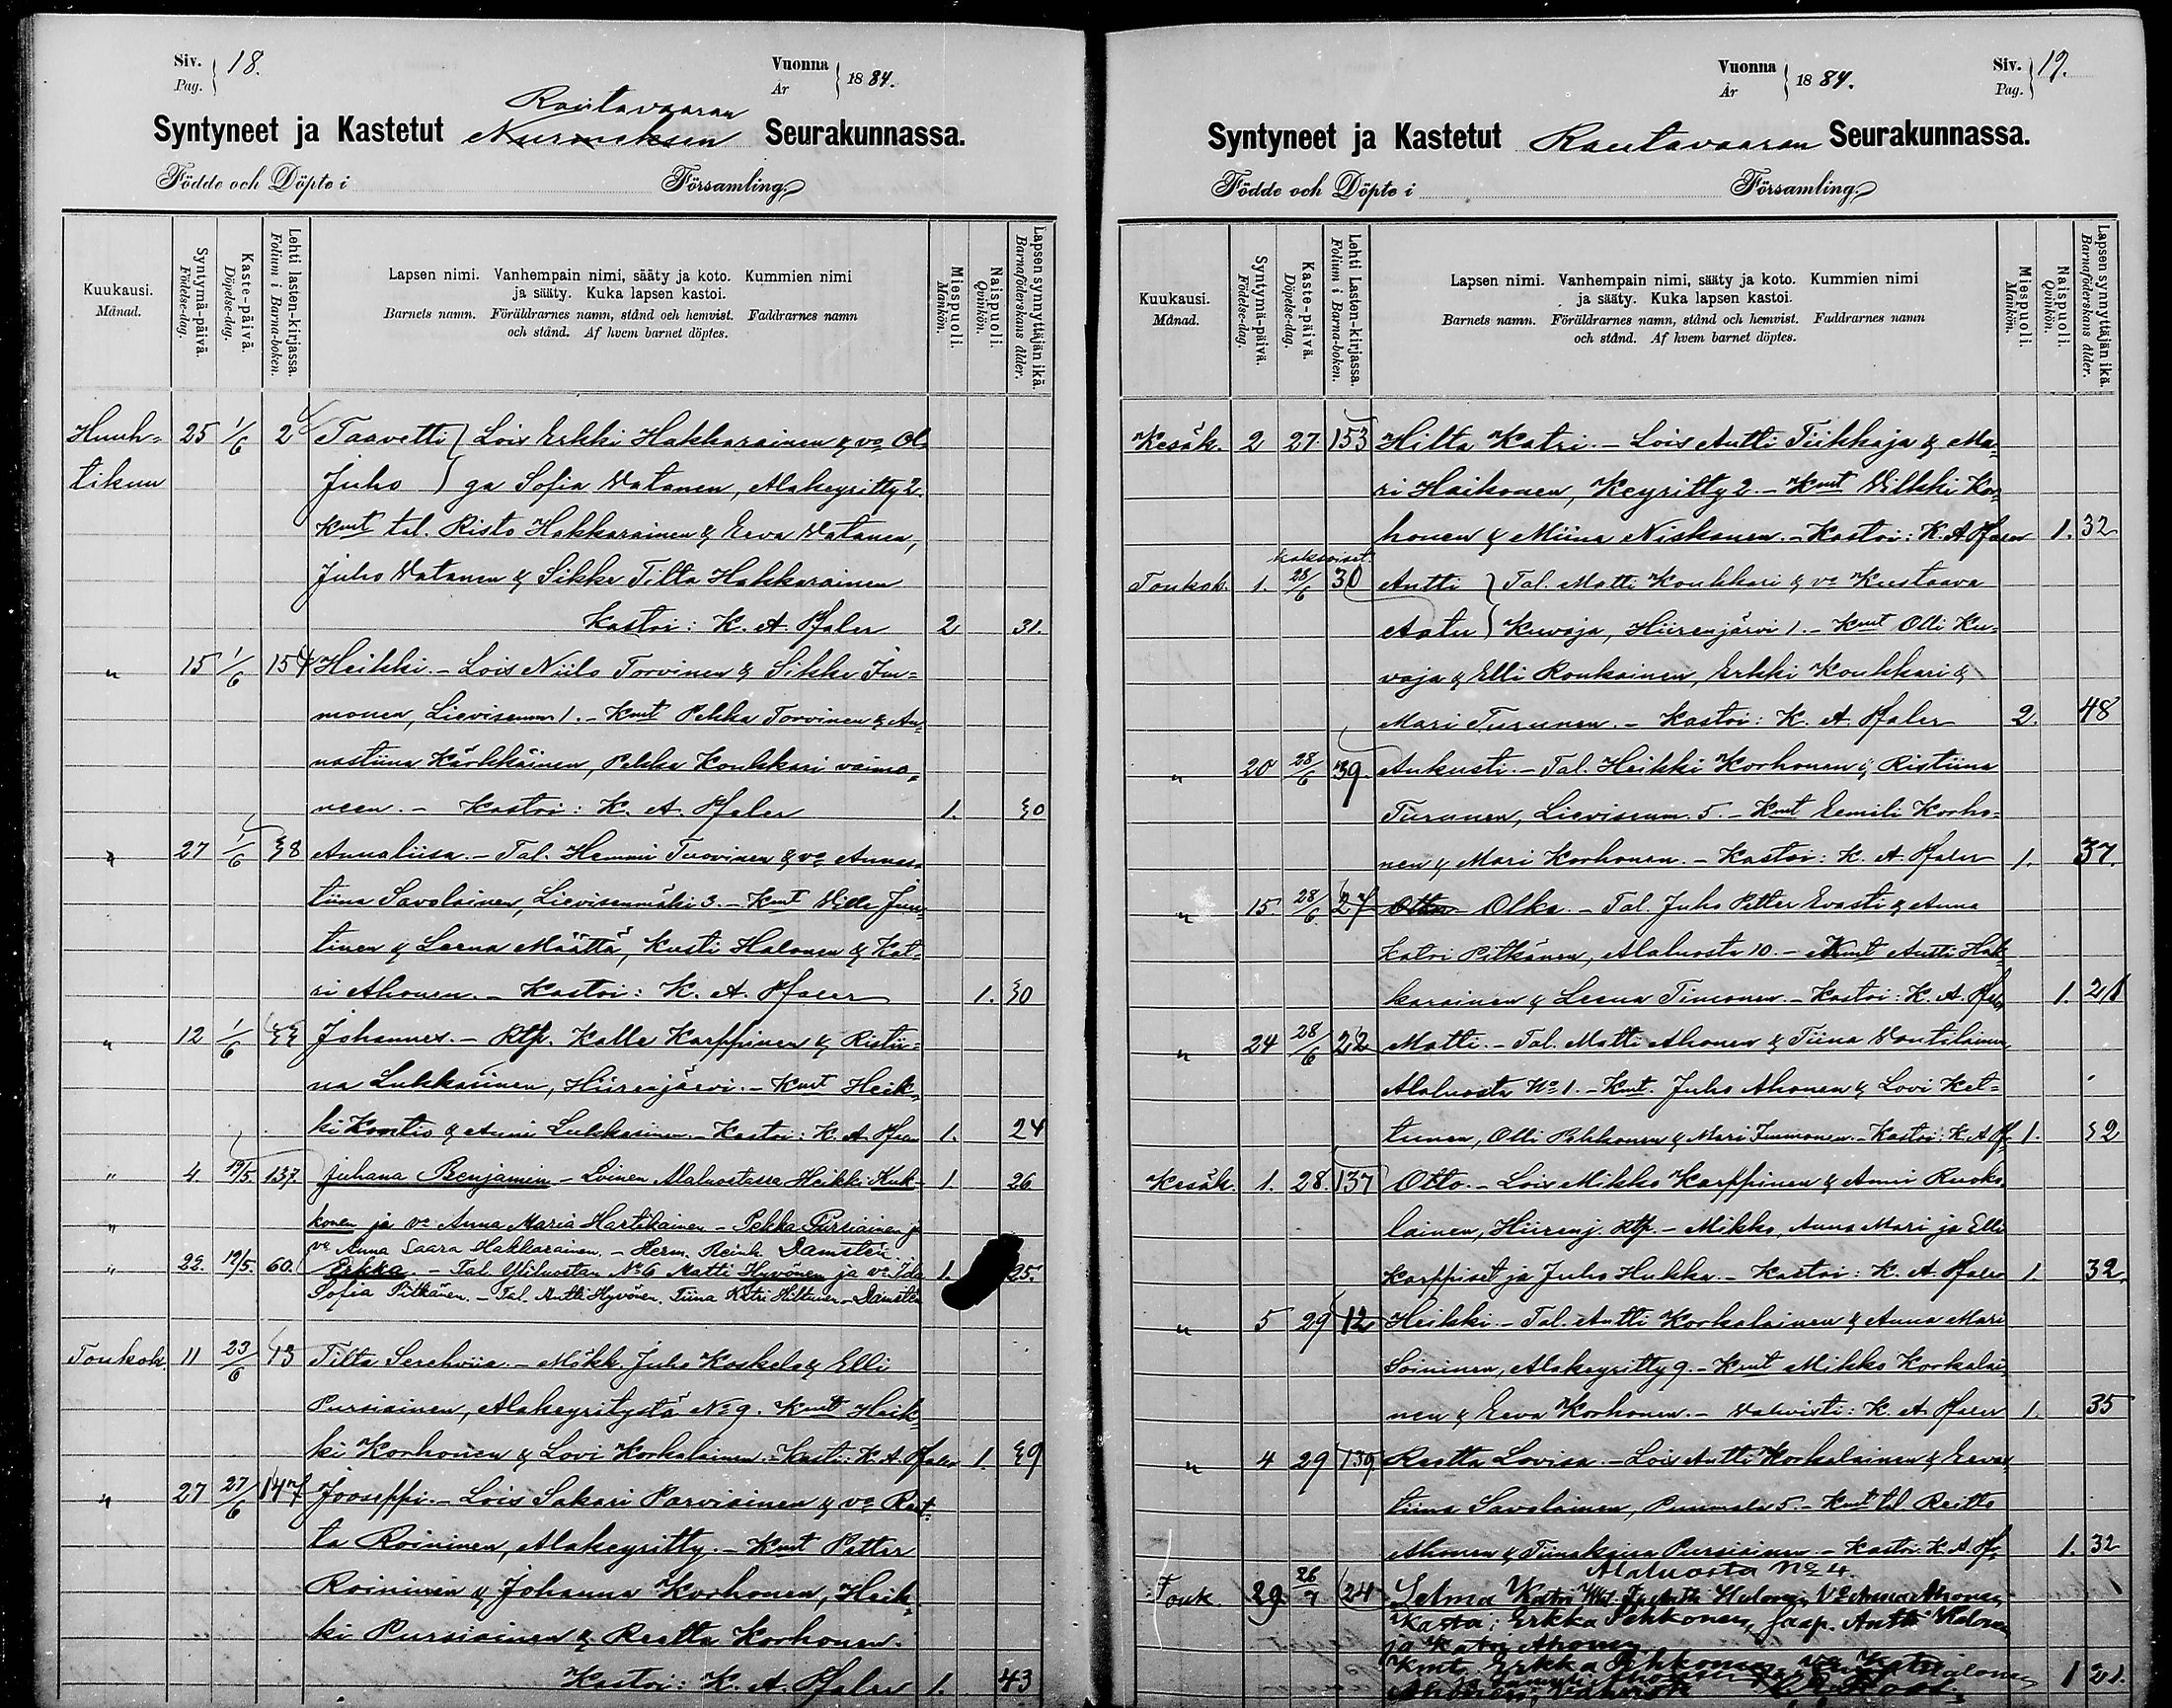 Siv. Pag. } 18.
Vuonna År } 1884.
Rautavaaran
Syntyneet ja Kastetut Nurmeksen Seurakunnassa.
Födde och Döpte i Församling.
Kuukausi. Månad.
Syntymä-päivä. Födelse-dag.
Kaste-päivä. Döpelse-dag.
Lehti lasten-kirjassa. Folium i Barna-boken.
Lapsen nimi. Vanhempain nimi, sääty ja koto. Kummien nimi
ja sääty. Kuka lapsen kastoi.
Barnets namn. Föräldrarnes namn, stånd och hemvist. Faddrarnes namn
och stånd. Af hvem barnet döptes.
Miespuoli. Mankön.
Naispuoli. Qvinkön.
Lapsen synnyttäjän ikä. Barnaföderskans ålder.
Huuh- 25 1/6 2 Taavetti } Lois Erkki Hakkarainen & vo Ol-
tikuu Juho } ga Sofia Vatanen, Alakeyritty 2.
Kmt tal. Risto Hakkarainen & Eeva Vatanen,
Juho Vatanen & Sikke Tilta Hakkarainen
Kastoi: K. A. Pfaler 2 31.
" 15 1/6 154 Heikki. - Lois Niilo Torvinen & Sikke Im-
monen, Lievisenm 1. - Kmt Pekka Torvinen & An-
nastiina Kärkkäinen, Pekka Koukkari vaimo-
neen. - Kastoi: K. A. Pfaler 1. 30
" 27 1/6 38 Annaliisa. - Tal. Hemmi Tuovinen & vo Annas-
tiina Savolainen, Lievisenmäki 3. - Kmt Ville Jun-
tinen & Leena Määttä, Kusti Halonen & Kat-
ri Ahonen. - Kastoi: K. A. Pfaler 1. 30
" 12 1/6 33 Johannes. - Rtp. Kalle Karppinen & Ristii-
na Lukkarinen, Hiirenjärvi. - Kmt Heik-
ki Kontio & Anni Lukkarinen. - Kastoi: K. A. Pfaler 1. 24
" 4. 19/5. 137. Juhana Benjamin - Loinen Alaluostassa Heikki Kuk- 1 26
" konen ja vo Anna Maria Hartikainen - Pekka Pursiainen ja
vo Anna Saara Hakkarainen. - Herm. Reinh. Damstén
" 22. 19/5. 60. Erkka. - Tal. Yliluostan No 6 Matti Hyvönen ja vo Ida 1. 25.
Sofia Pitkänen. - Tal. Antti Hyvönen. Tiina Katri Hiltunen - Damstén
Toukok. 11 23/6 13 Tilta Serehviia. - Mökk. Juho Koskelo & Elli
Pursiainen, Alakeyritystä No 9. Kmt Heik-
ki Korhonen & Lovi Korkalainen. - Kasti: K. A. Pfaler 1. 39
" 27 27/6 147 Jooseppi. - Lois Sakari Parviainen & vo Reet-
ta Roininen, Alakeyritty. - Kmt Petter
Roininen & Johanna Korhonen, Heik-
ki Pursiainen & Reetta Korhonen.
Kastoi: K. A. Pfaler 1. 43
Vuonna År } 1884.
Siv. Pag. } 19.
Syntyneet ja Kastetut Rautavaaran Seurakunnassa.
Födde och Döpte i Församling.
Kuukausi. Månad.
Syntymä-päivä. Födelse-dag.
Kaste-päivä. Döpelse-dag.
Lehti Lasten-kirjassa. Folium i Barna-boken.
Lapsen nimi. Vanhempain nimi, sääty ja koto. Kummien nimi
ja sääty. Kuka lapsen kastoi.
Barnets namn. Föräldrarnes namn, stånd och hemvist. Faddrarnes namn
och stånd. Af hvem barnet döptes.
Miespuoli. Mankön.
Naispuoli. Qvinkön.
Lapsen synnyttäjän ikä. Barnaföderskans ålder.
Kesäk. 2 27. 153 Hilta Katri. - Lois Antti Tiikkaja & Ma-
ri Haikonen, Keyritty 2. - Kmt Vilkki Kor-
honen & Miina Niskanen. - Kastoi: K. A. Pfaler 1. 32
kaksoiset
Toukok. 1. 28/6 30 Antti } Tal. Matti Koukkari & vo Kustaava
Aatu } Kuvaja, Hiirenjärvi 1. - Kmt Olli Ku-
vaja & Elli Ronkainen, Erkki Koukkari &
Mari Turunen. - Kastoi: K. A. Pfaler 2. 48
" 20 28/6 39. Aukusti. - Tal. Heikki Korhonen & Ristiina
Turunen, Lievisenm. 5. - Kmt Eemili Korho-
nen & Mari Korhonen. - Kastoi: K. A. Pfaler 1. 37.
" 15. 28/6. 27 Olka. - Tal. Juho Petter Evasti & Anna
Katri Pitkänen, Alaluosta 10. - Kmt Antti Hak-
karainen & Leena Timonen. - Kastoi: K. A. Pfaler 1. 21
" 24 28/6 22 Matti. - Tal. Matti Ahonen & Tiina Voutilainen
Alaluosta No 1. - Kmt. Juho Ahonen & Lovi Ket-
tunen, Olli Pehkonen & Mari Immonen. - Kastoi: K. A. Pf. 1. 32
Kesäk. 1. 28. 137 Otto. - Lois Mikko Karppinen & Anni Ruoko-
lainen, Hiirenj. Rtp. - Mikko, Anna Mari ja Elli
Karppiset ja Juho Hukka. - Kastoi: K. A. Pfaler 1. 32.
" 5 29 12 Heikki. - Tal. Antti Korkalainen & Anna Mari
Soininen, Alakeyritty 9. - Kmt Mikko Korkalai-
nen & Eeva Korhonen. - Vahvisti: K. A. Pfaler 1. 35
" 4 29 139. Reetta Lovisa. - Lois Antti Korkalainen & Eevas-
tiina Savolainen, Puumala 5. - Kmt tal Reitto
Ahonen & Tiinakaisa Pursiainen. - Kastoi: K. A. Pf. 1. 32
Alaluosta No 4.
Touk. 29 26/7 24 Selma Katri Antti Halonen Vo Anna Ahonen
Kasta: Erkka Pehkonen, Antti Halonen
ja Katri Ahonen
Kmt. Erkka Pehkonen Halonen 1 21.